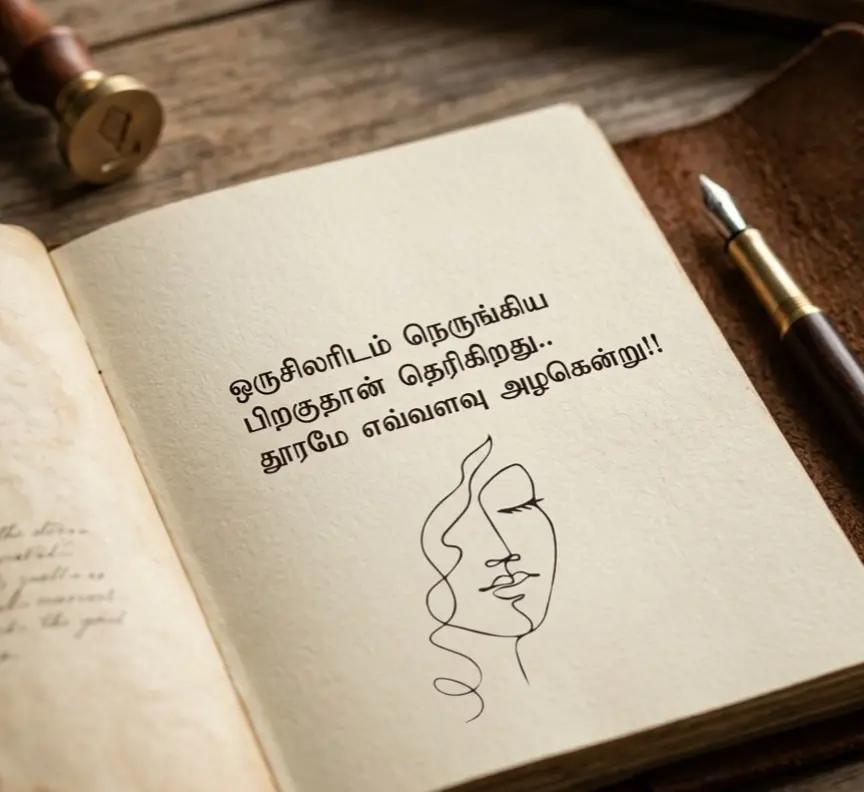 ஒருசிலரிடம் நெருங்கிய
பிறகுதான் தெரிகிறது..
தூரமே எவ்வளவு அழகென்று!!